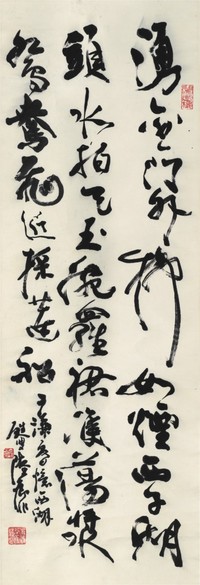 湧金門外柳如煙西子湖
頭水拍天玉腕羅裙雙蕩槳
鴛鴦飛近採蓮船 于謙憶西湖